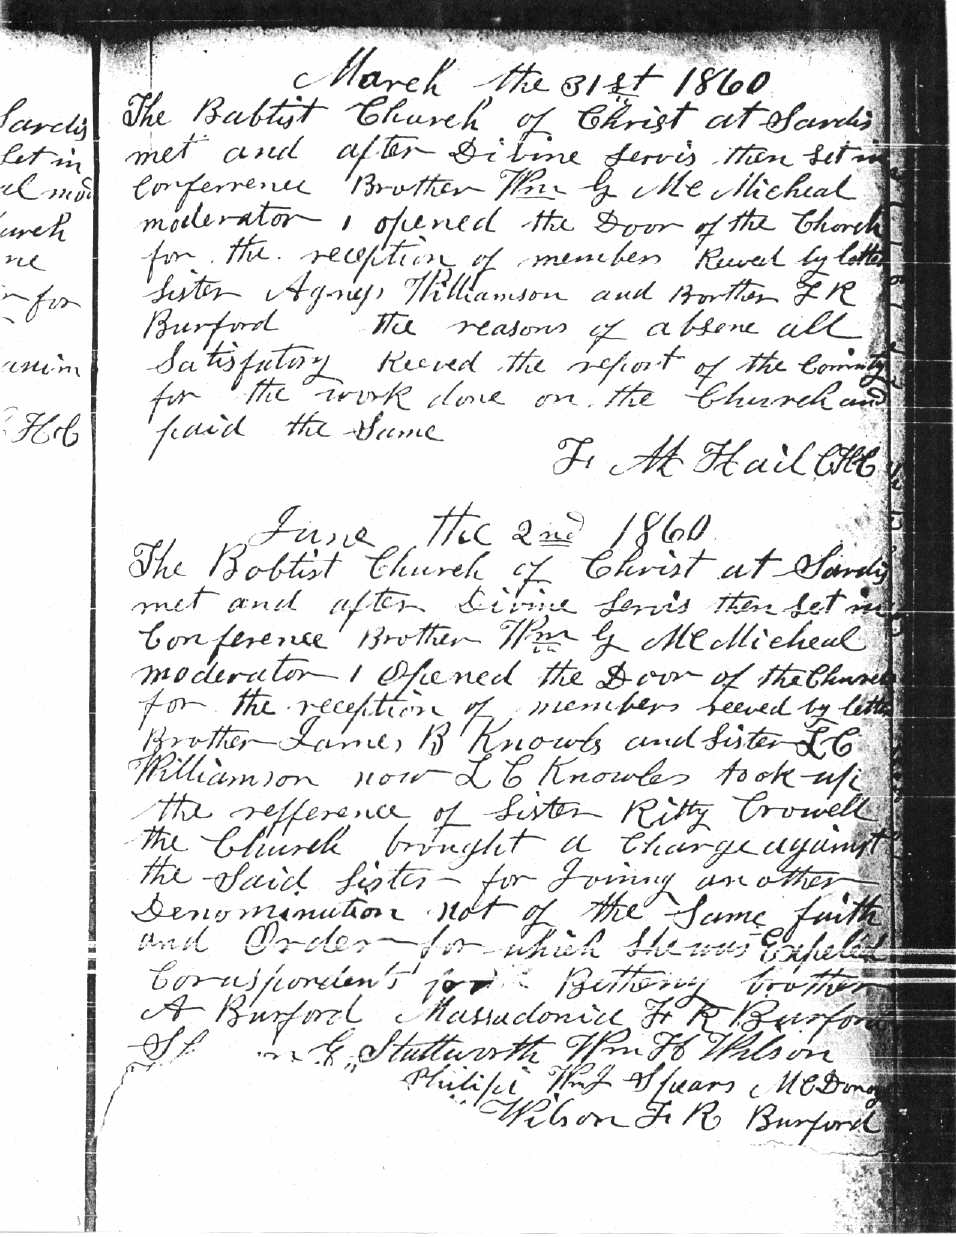 March the 31st 1860
The Babtist Church of Christ at Sardis
met and after Divine Servis then Set in
Conferrence Brother Wm G McMicheal
moderator 1 opened the Door of the Church
for the reception of members Receved by letter
Sister Agness Williamson and Borther F R
Burford the reasons of absene all
Satisfutory Receved the report of the Comnity
for the work done on the Church and
paid the Same
F M Hail CHC
June the 2nd 1860
The Bobtist Church of Christ at Sardis
met and after Divine Servis then Set in
Conference Brother Wm G McMicheal
moderator 1 Opened the Door of the Church
for the reception of members receved by letter
Brother James B Knowls and Sister L C
Williamson now L C Knowles took up
the refference of Sister Kitty Crowell
the Church brought a Charge against
the Said Sister for Joining another
Denomination not of the Same faith
and Order for which She was Expeled
Coruspondents Betheny brother
A Burford Massadonia F R Burford
G Stallworth Wm H Wilson
Philipi Wm J Spears McDonog
Wilson F R Burford
Sardis
Set in
urch
ne
for
anim
HC